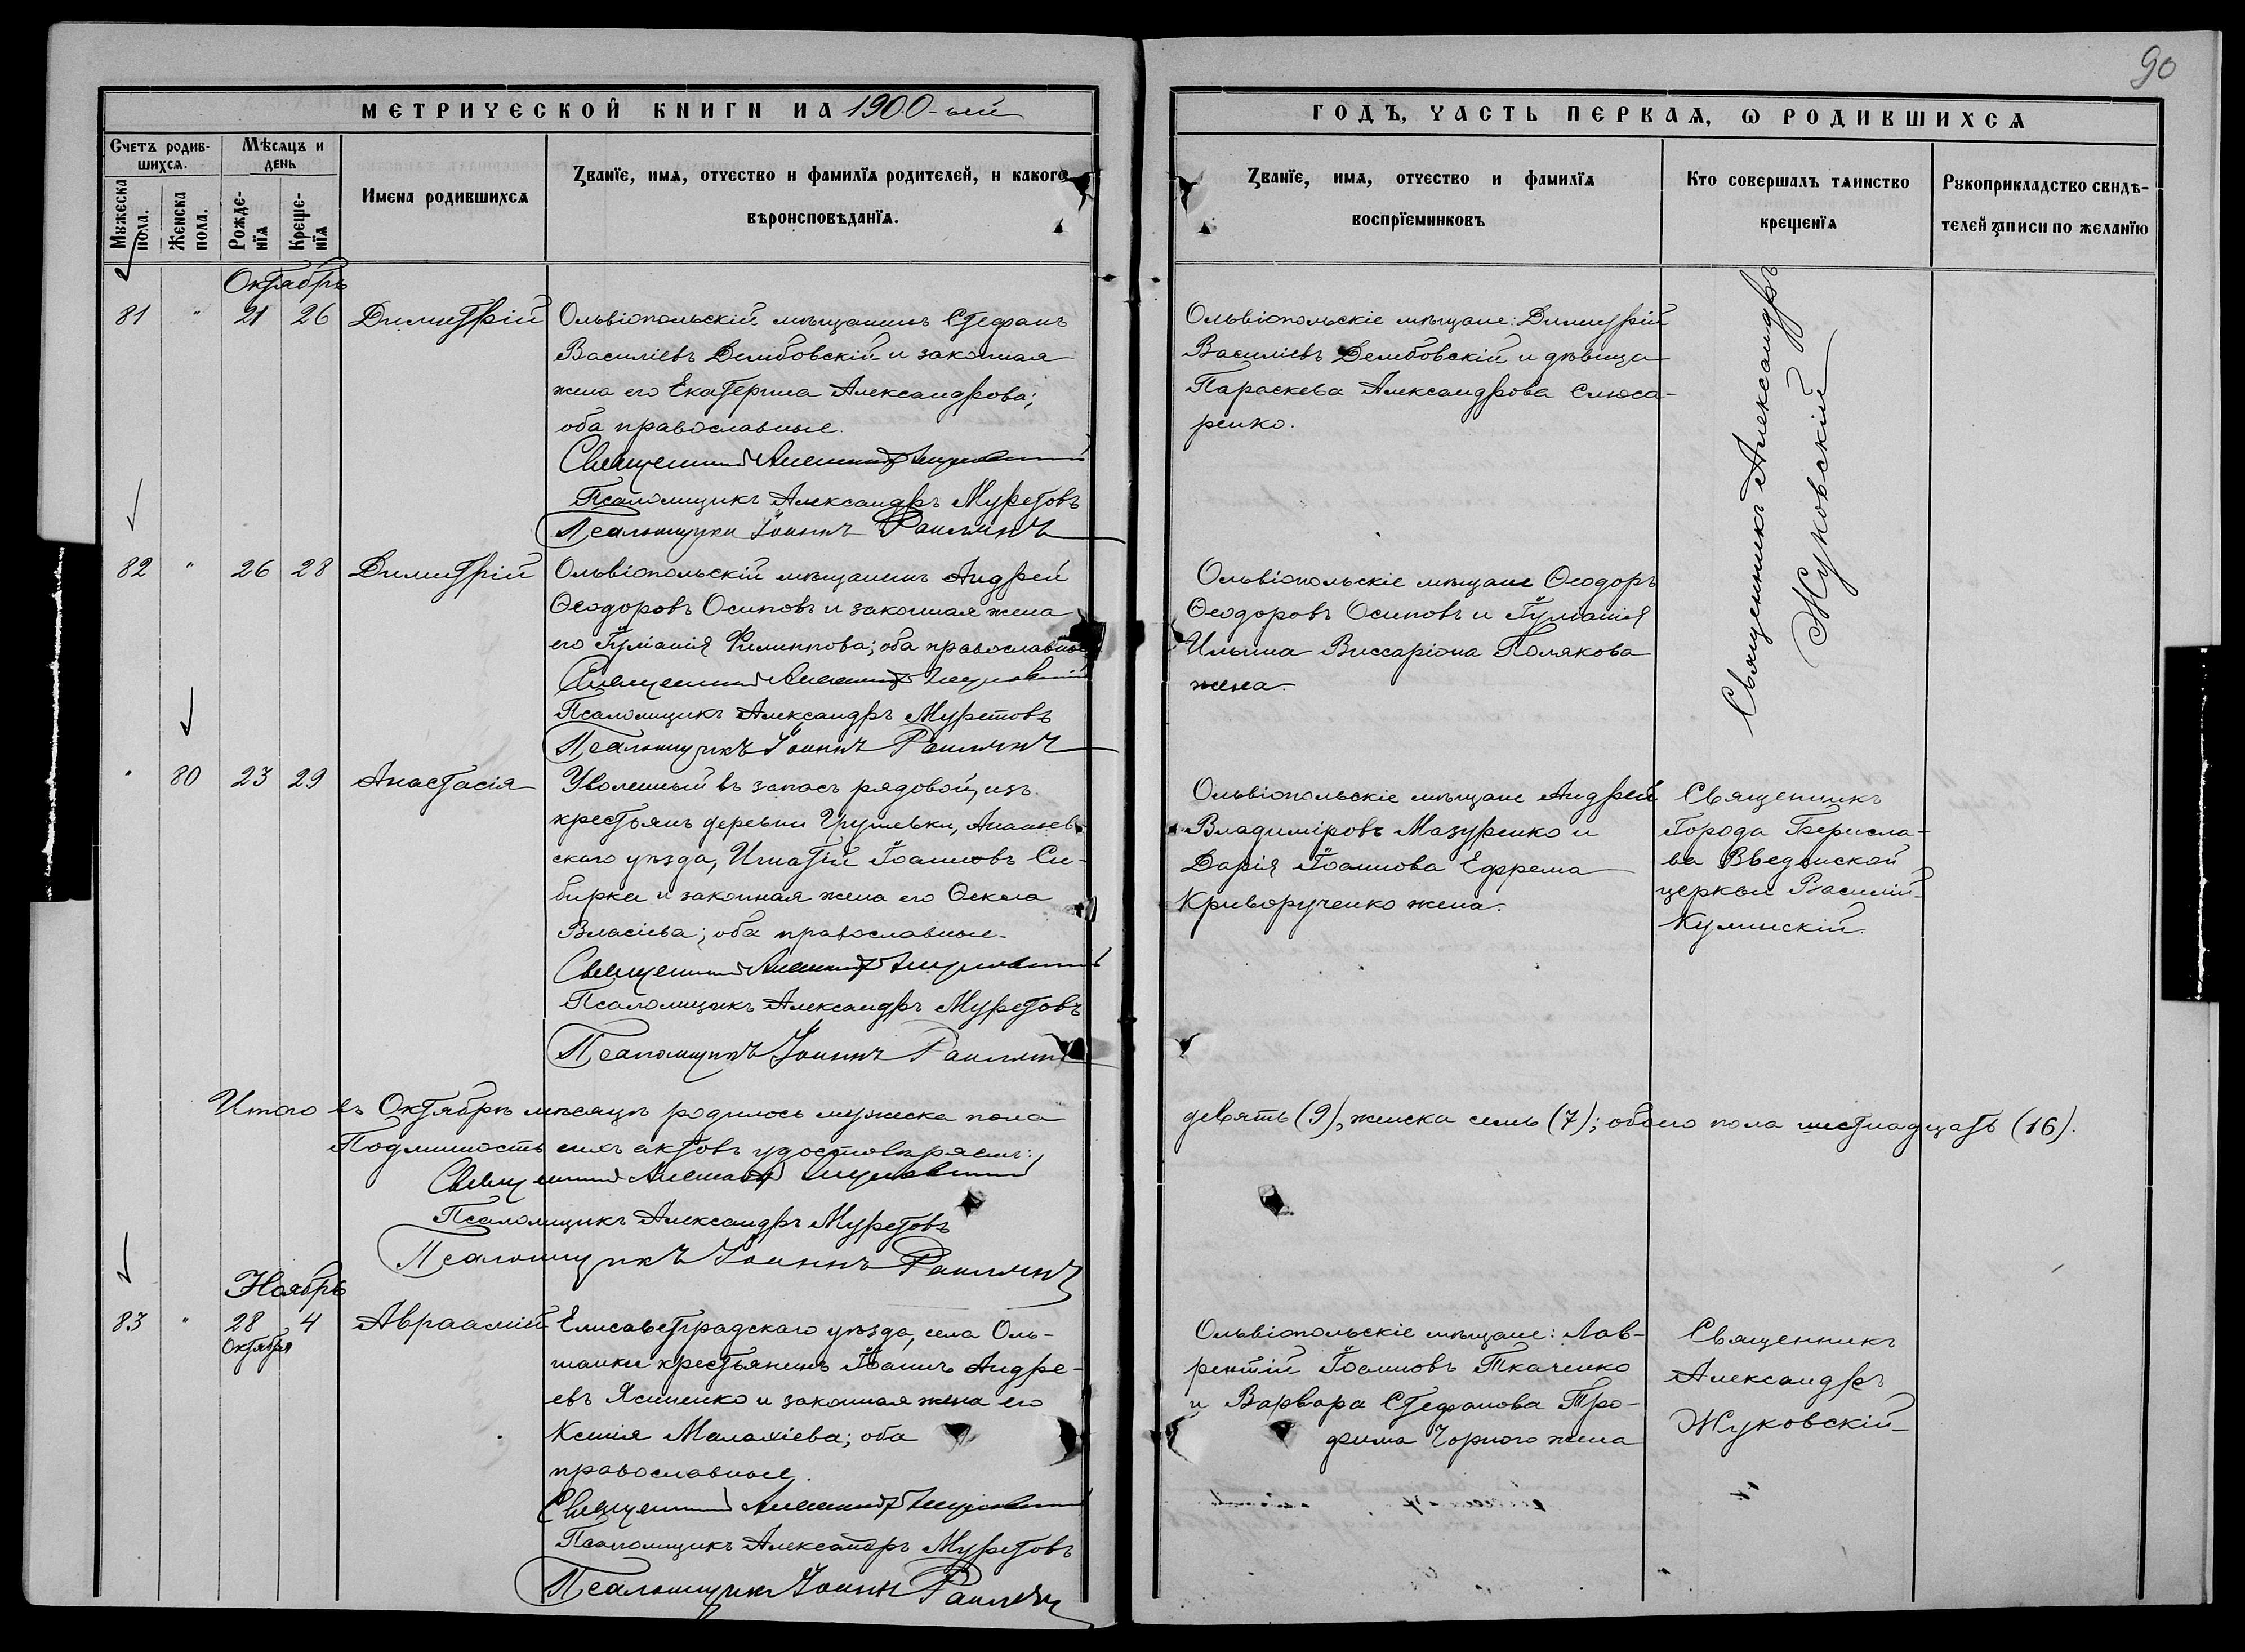 90
МЕТРИЧЕСКОЙ КНИГИ НА 1900-ый
ГОДЪ, ЧАСТЬ ПЕРВАЯ, Ѡ РОДИВШИХСЯ
Счетъ родив-
шихся.
Мѣсяцъ и
день
Мужеска
пола.
Женска
пола.
Рожде-
нїя
Креще-
нїя
Имена родившихся
Званїе, имя, отчество и фамилїя родителей, и какого
вѣроисповѣданїя.
Званїе, имя, отчество и фамилїя
воспрїемниковъ
Кто совершалъ таинство
крещенїя
Рукоприкладство свидѣ-
телей записи по желанїю
Октябрь
81 " 21 26 Димитрій
Ольвіопольскій мѣщанинъ Стефанъ
Василіевъ Дембовскій и законная
жена его Екатерина Александрова;
оба православные.
Священникъ Александръ Жуковскій
Псаломщикъ Александръ Муретовъ
Псаломщикъ Іоаннъ
Ольвіопольскіе мѣщане: Димитрій
Василіевъ Дембовскій и дѣвица
Параскева Александрова Слюса-
ренко.
Священникъ Александръ
Жуковскій
82 " 26 28 Димитрій
Ольвіопольскій мѣщанинъ Андрей
Ѳеодоровъ Осиповъ и законная жена
его Іуліанія Филиппова; оба православные
Священникъ Александръ Жуковскій
Псаломщикъ Александръ Муретовъ
Псаломщикъ Іоаннъ
Ольвіопольскіе мѣщане Ѳеодоръ
Ѳеодоровъ Осиповъ и Іуліанія
Ильина Виссаріона Полякова
жена.
" 80 23 29 Анастасія
Уволенный въ запасъ рядовой, изъ
крестьянъ деревни Грушевки, Ананьев-
скаго уѣзда, Игнатій Іоанновъ Си-
бирка и законная жена его Ѳекла
Власіева; оба православные.
Священникъ Александръ Жуковскій
Псаломщикъ Александръ Муретовъ
Псаломщикъ Іоаннъ
Ольвіопольскіе мѣщане Андрей
Владиміровъ Мазуренко и
Дарія Іоаннова Ефрема
Криворученко жена.
Священникъ
города Берисла-
ва Введенской
церкви Василій
Кулинскій.
Итого въ Октябрѣ мѣсяцѣ родилось мужеска пола
девять (9), женска семь (7); обоего пола шестнадцать (16).
Подлинность сихъ актовъ удостовѣряемъ:
Священникъ Александръ Жуковскій
Псаломщикъ Александръ Муретовъ
Псаломщикъ Іоаннъ
Ноябрь
83 " 28 4 Авраамій
Октября
Елисаветградскаго уѣзда, села Оль-
шанки крестьянинъ Іоаннъ Андре-
евъ Ясиненко и законная жена его
Ксенія Малахіева; оба
православные.
Священникъ Александръ Жуковскій
Псаломщикъ Александръ Муретовъ
Псаломщикъ Іоаннъ
Ольвіопольскіе мѣщане: Лав-
рентій Іоанновъ Ткаченко
и Варвара Стефанова Тро-
фима Чорного жена
Священникъ
Александръ
Жуковскій